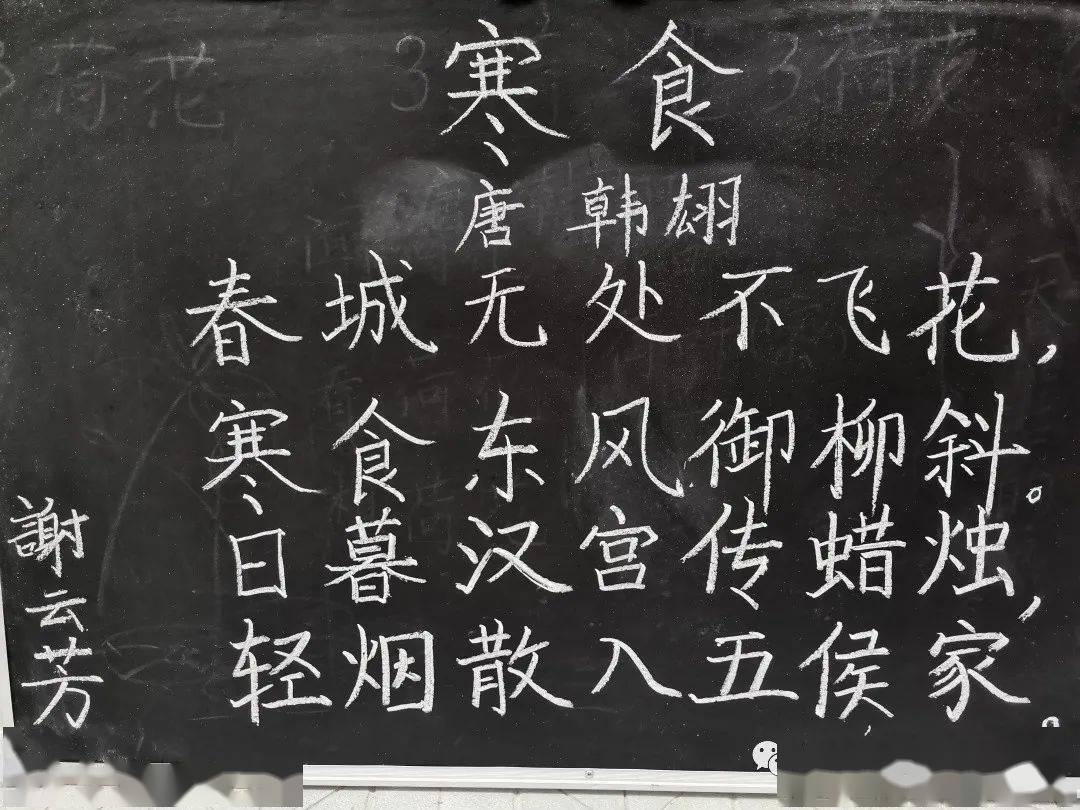 寒食
唐 韩翃
春城无处不飞花，
寒食东风御柳斜。
日暮汉宫传蜡烛，
轻烟散入五侯家。
謝云芳